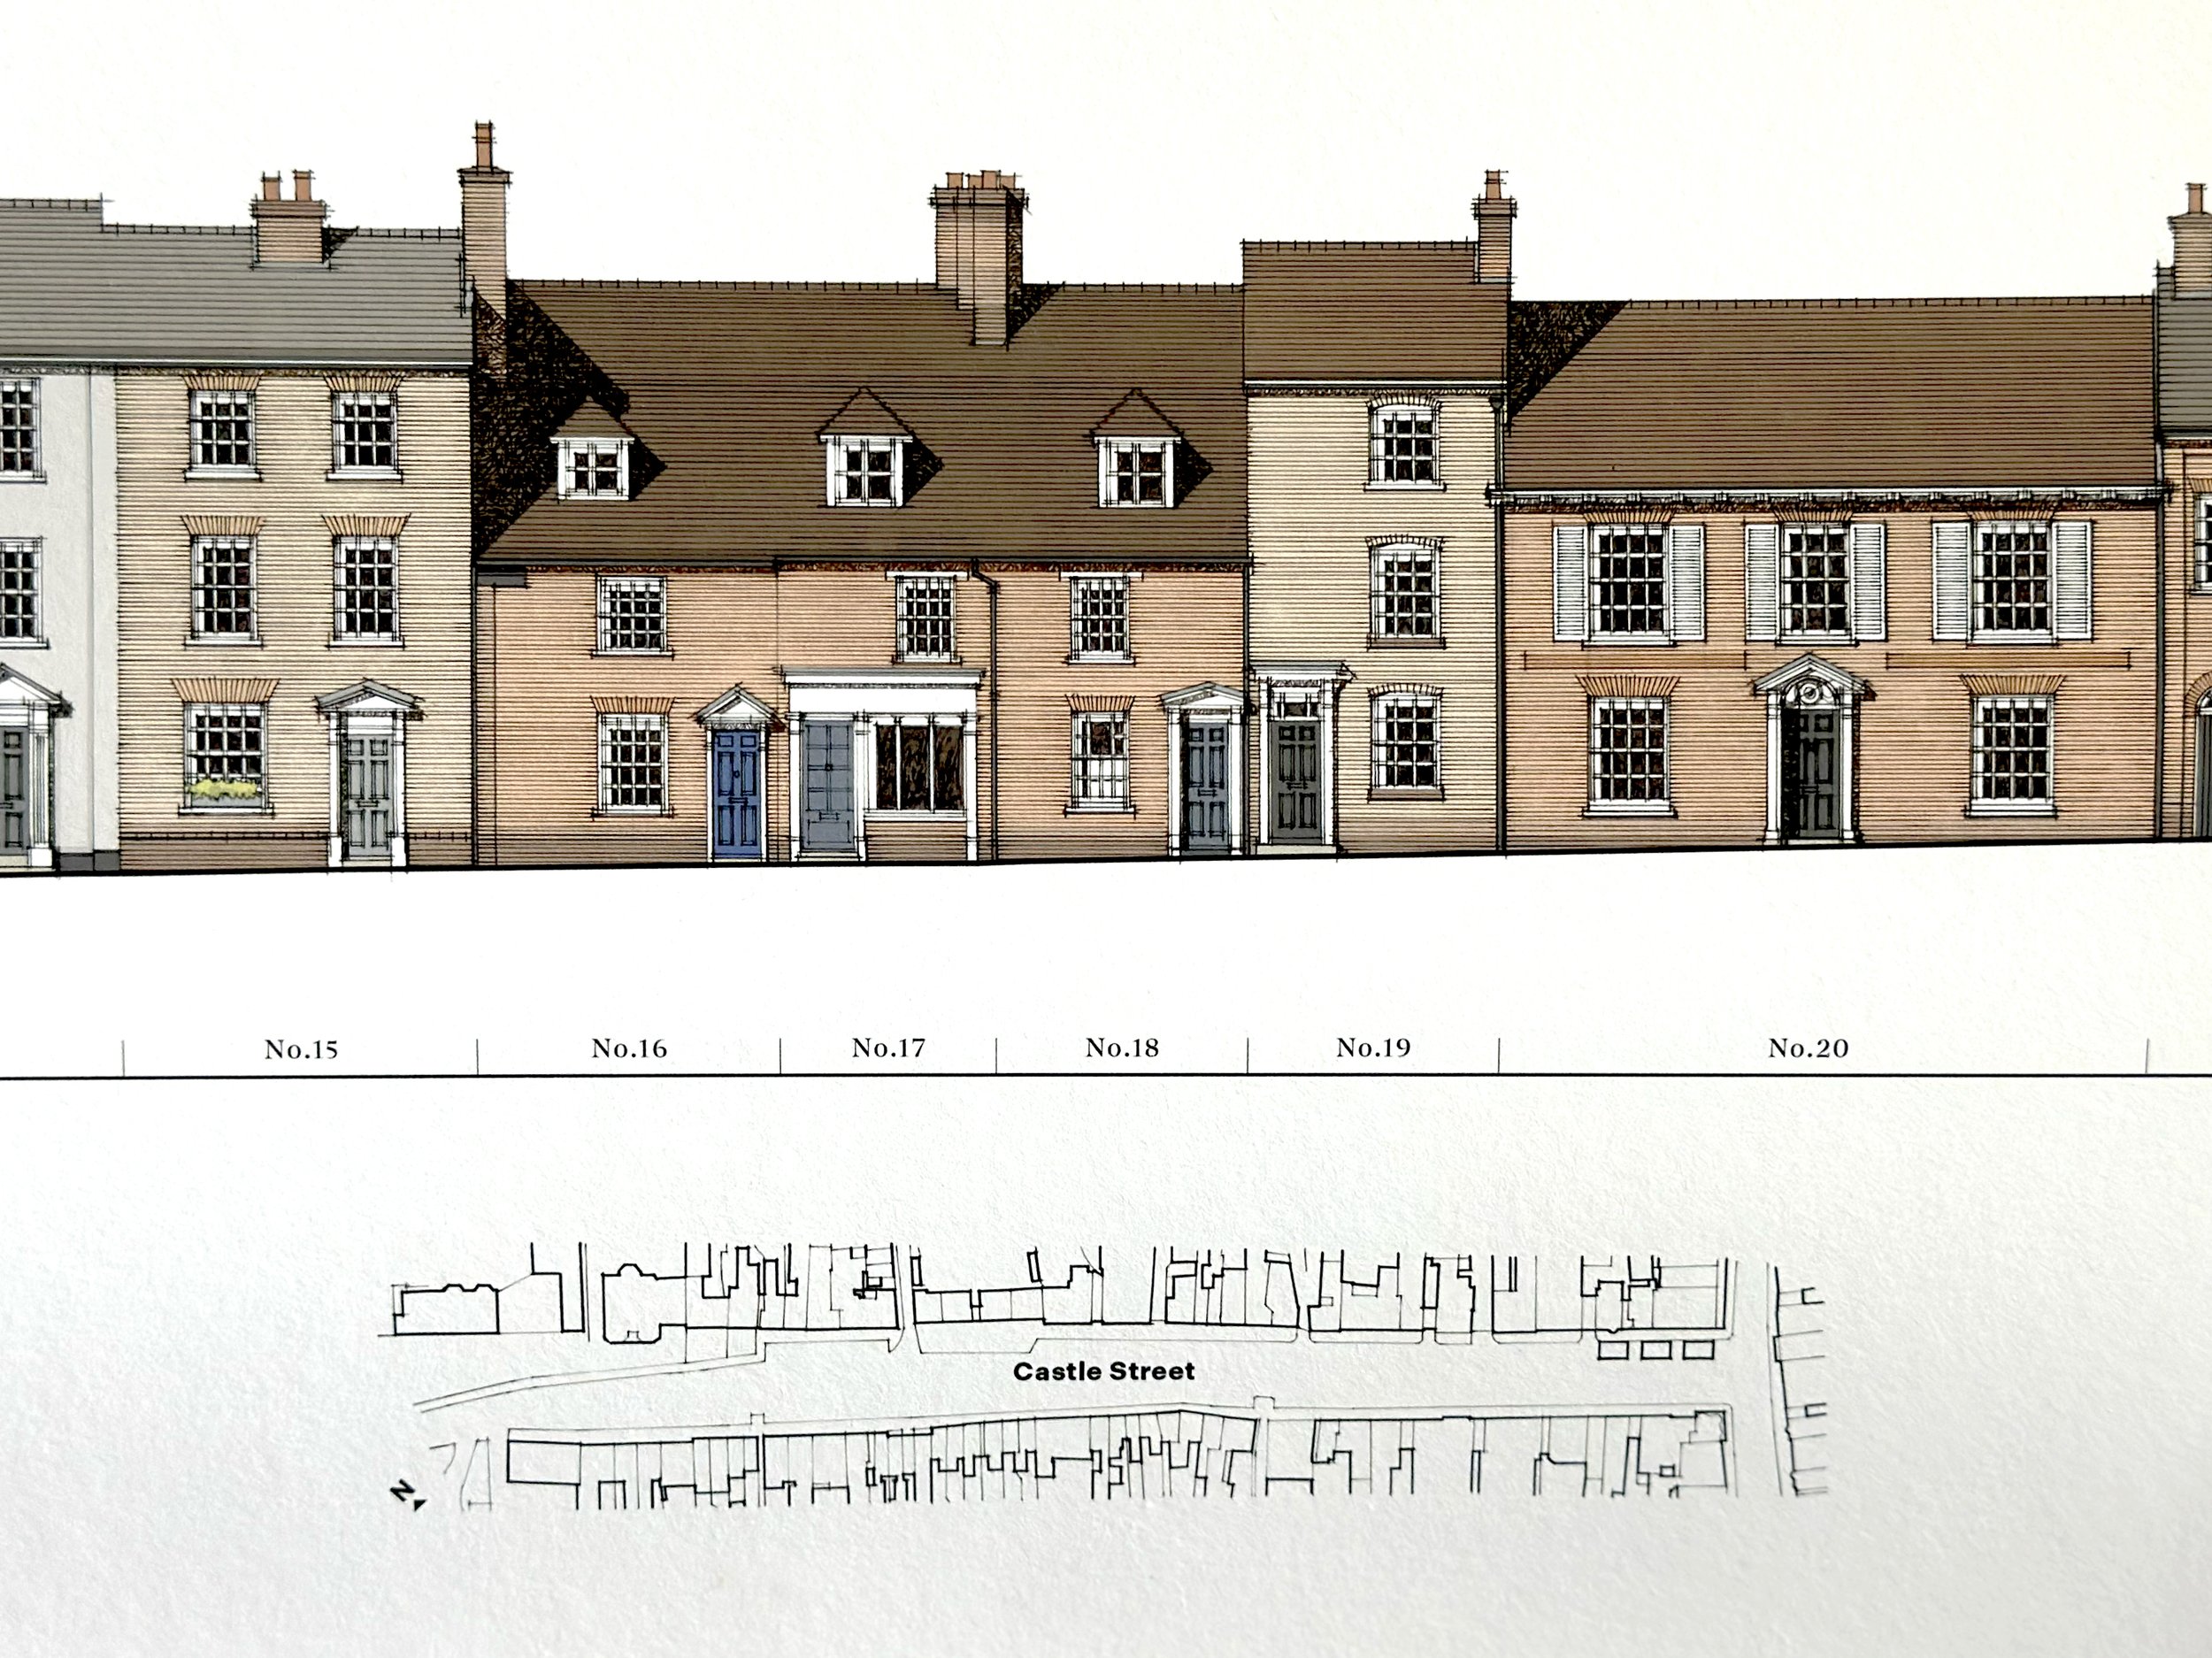 No.15 No.16 No.17 No.18 No.19 No.20
Castle Street
N